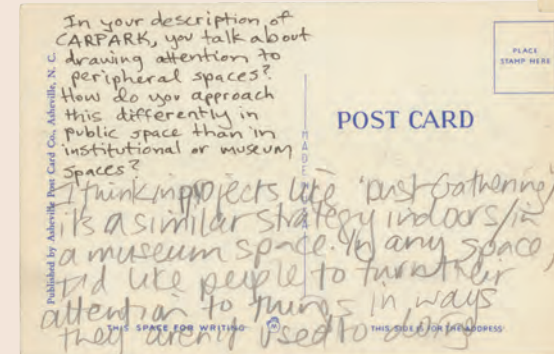 In your description of
CARPARK, you talk about
drawing attention to
peripheral spaces?
How do you approach
this differently in
public space than in
institutional or museum
spaces?
I think in projects like 'Dust Gathering'
it's a similar strategy indoors/in
a museum space. In any space,
I'd like people to turn their
attention to things in ways
they aren't used to doing
PLACE
STAMP HERE
POST CARD
Published by Asheville Post Card Co., Asheville, N. C.
MADE
THIS SPACE FOR WRITING
THIS SIDE IS FOR THE ADDRESS